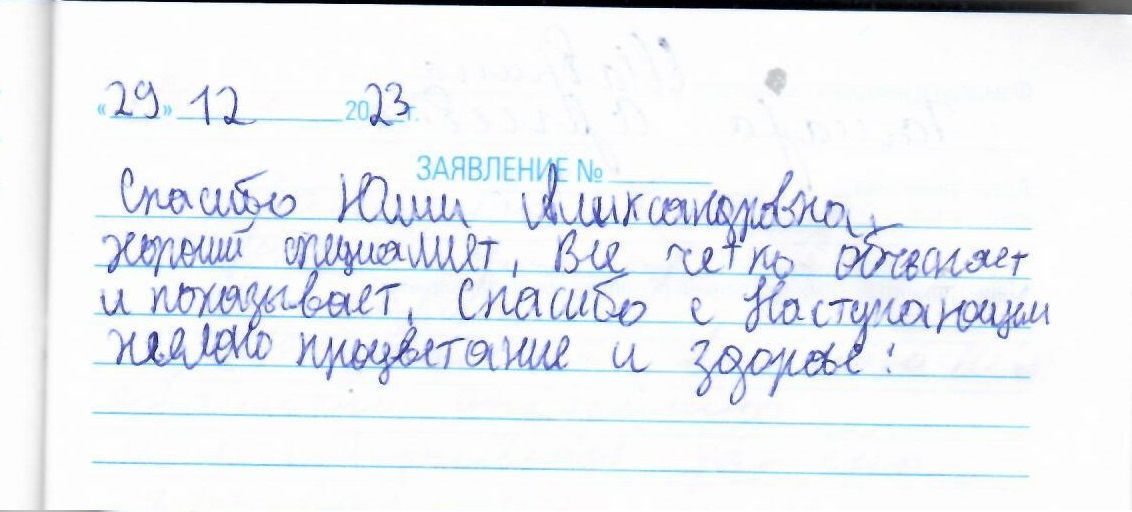 «29» 12 2023г.
ЗАЯВЛЕНИЕ №
Спасибо Юлии Аликсандровна,
хороший специалист, Все четко обьясняет
и показывает, спасибо с Наступающим
желаю процветание и здоровье!